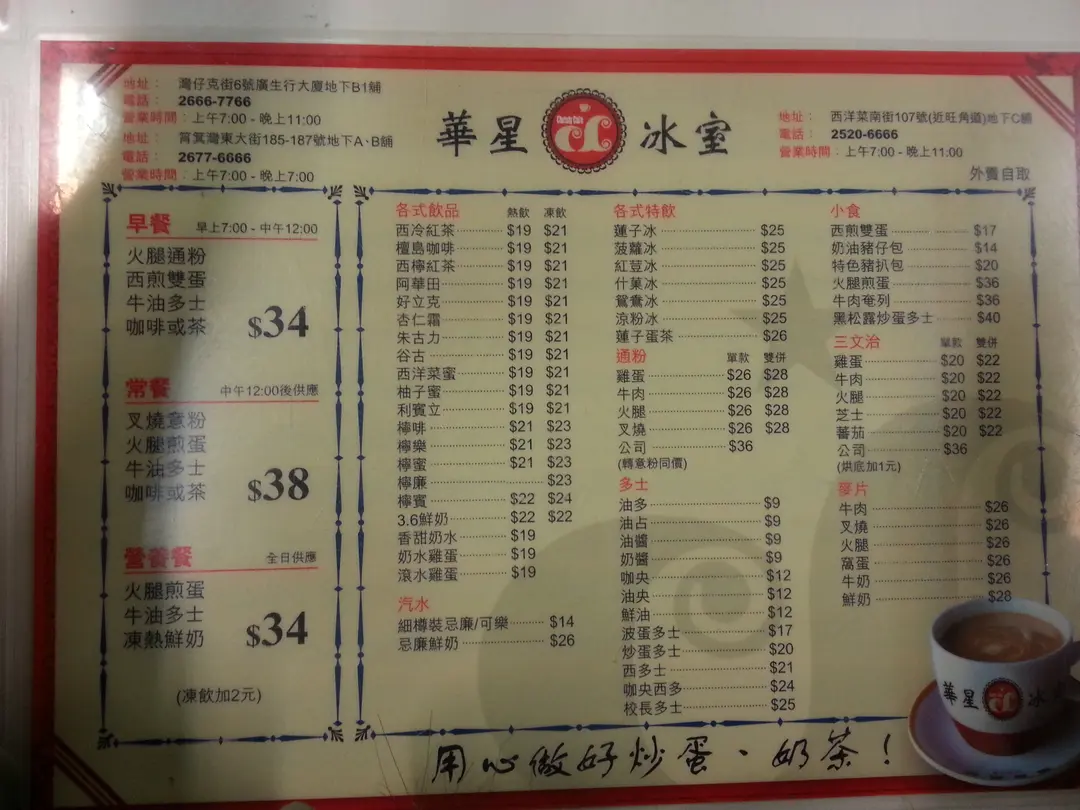 地址： 灣仔克街6號廣生行大廈地下B1舖
電話： 2666-7766
營業時間：上午7:00 - 晚上11:00
地址： 筲箕灣東大街185-187號地下A、B舖
電話： 2677-6666
營業時間：上午7:00 - 晚上7:00
華星冰室
地址： 西洋菜南街107號(近旺角道)地下C舖
電話： 2520-6666
營業時間：上午7:00 - 晚上11:00
外賣自取
早餐 早上7:00 - 中午12:00
火腿通粉
西煎雙蛋
牛油多士
咖啡或茶 $34
常餐 中午12:00後供應
叉燒意粉
火腿煎蛋
牛油多士
咖啡或茶 $38
營養餐 全日供應
火腿煎蛋
牛油多士
凍熱鮮奶 $34
(凍飲加2元)
各式飲品 熱飲 凍飲
西冷紅茶 $19 $21
檀島咖啡 $19 $21
西檸紅茶 $19 $21
阿華田 $19 $21
好立克 $19 $21
杏仁霜 $19 $21
朱古力 $19 $21
谷古 $19 $21
西洋菜蜜 $19 $21
柚子蜜 $19 $21
利賓立 $19 $21
檸啡 $21 $23
檸樂 $21 $23
檸蜜 $21 $23
檸廉 $23
檸賓 $22 $24
3.6鮮奶 $22 $22
香甜奶水 $19
奶水雞蛋 $19
滾水雞蛋 $19
汽水
細樽裝忌廉/可樂 $14
忌廉鮮奶 $26
各式特飲
蓮子冰 $25
菠蘿冰 $25
紅荳冰 $25
什菓冰 $25
鴛鴦冰 $25
涼粉冰 $25
蓮子蛋茶 $26
通粉 單款 雙併
雞蛋 $26 $28
牛肉 $26 $28
火腿 $26 $28
叉燒 $26 $28
公司 $36
(轉意粉同價)
多士
油多 $9
油占 $9
油醬 $9
奶醬 $9
咖央 $12
油央 $12
鮮油 $12
波蛋多士 $17
炒蛋多士 $20
西多士 $21
咖央西多 $24
校長多士 $25
小食
西煎雙蛋 $17
奶油豬仔包 $14
特色豬扒包 $20
火腿煎蛋 $36
牛肉奄列 $36
黑松露炒蛋多士 $40
三文治 單款 雙併
雞蛋 $20 $22
牛肉 $20 $22
火腿 $20 $22
芝士 $20 $22
蕃茄 $20 $22
公司 $36
(烘底加1元)
麥片
牛肉 $26
叉燒 $26
火腿 $26
窩蛋 $26
牛奶 $26
鮮奶 $28
華星 冰
用心做好炒蛋、奶茶！